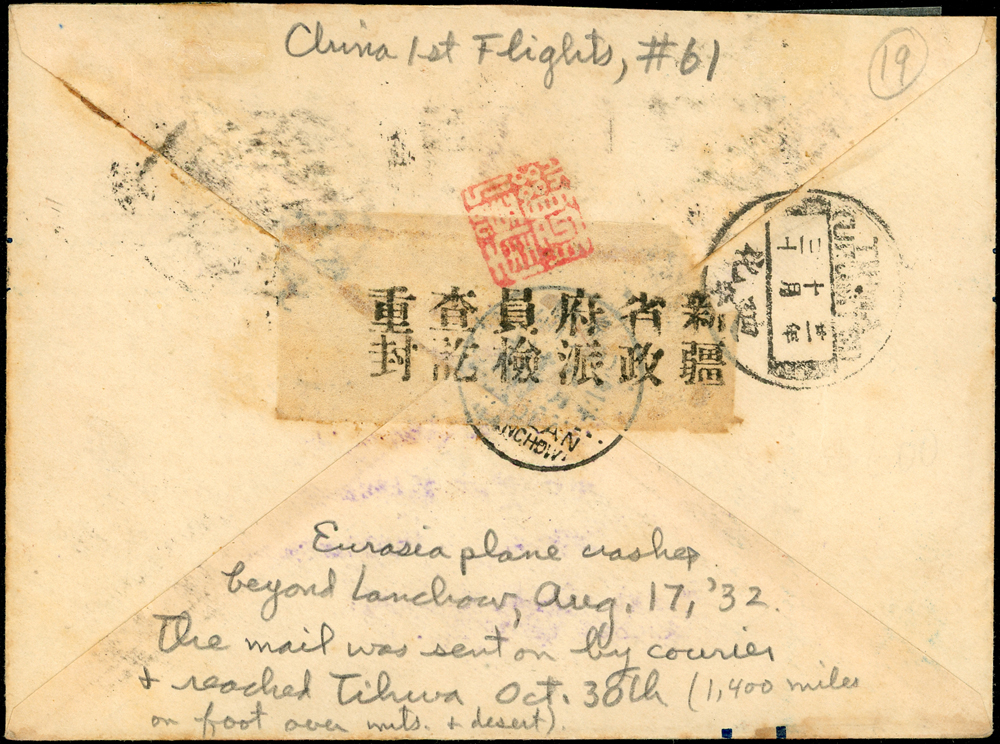 China 1st Flights, #61
19
新疆
省政
府派
員檢
查訖
重封
TIHWA
迪化
十月
三十
LAN
ANCHOW
Eurasia plane crashed
beyond Lanchow, Aug. 17, '32.
The mail was sent on by courier
+ reached Tihwa Oct. 30th (1,400 miles
on foot over mts. + desert).